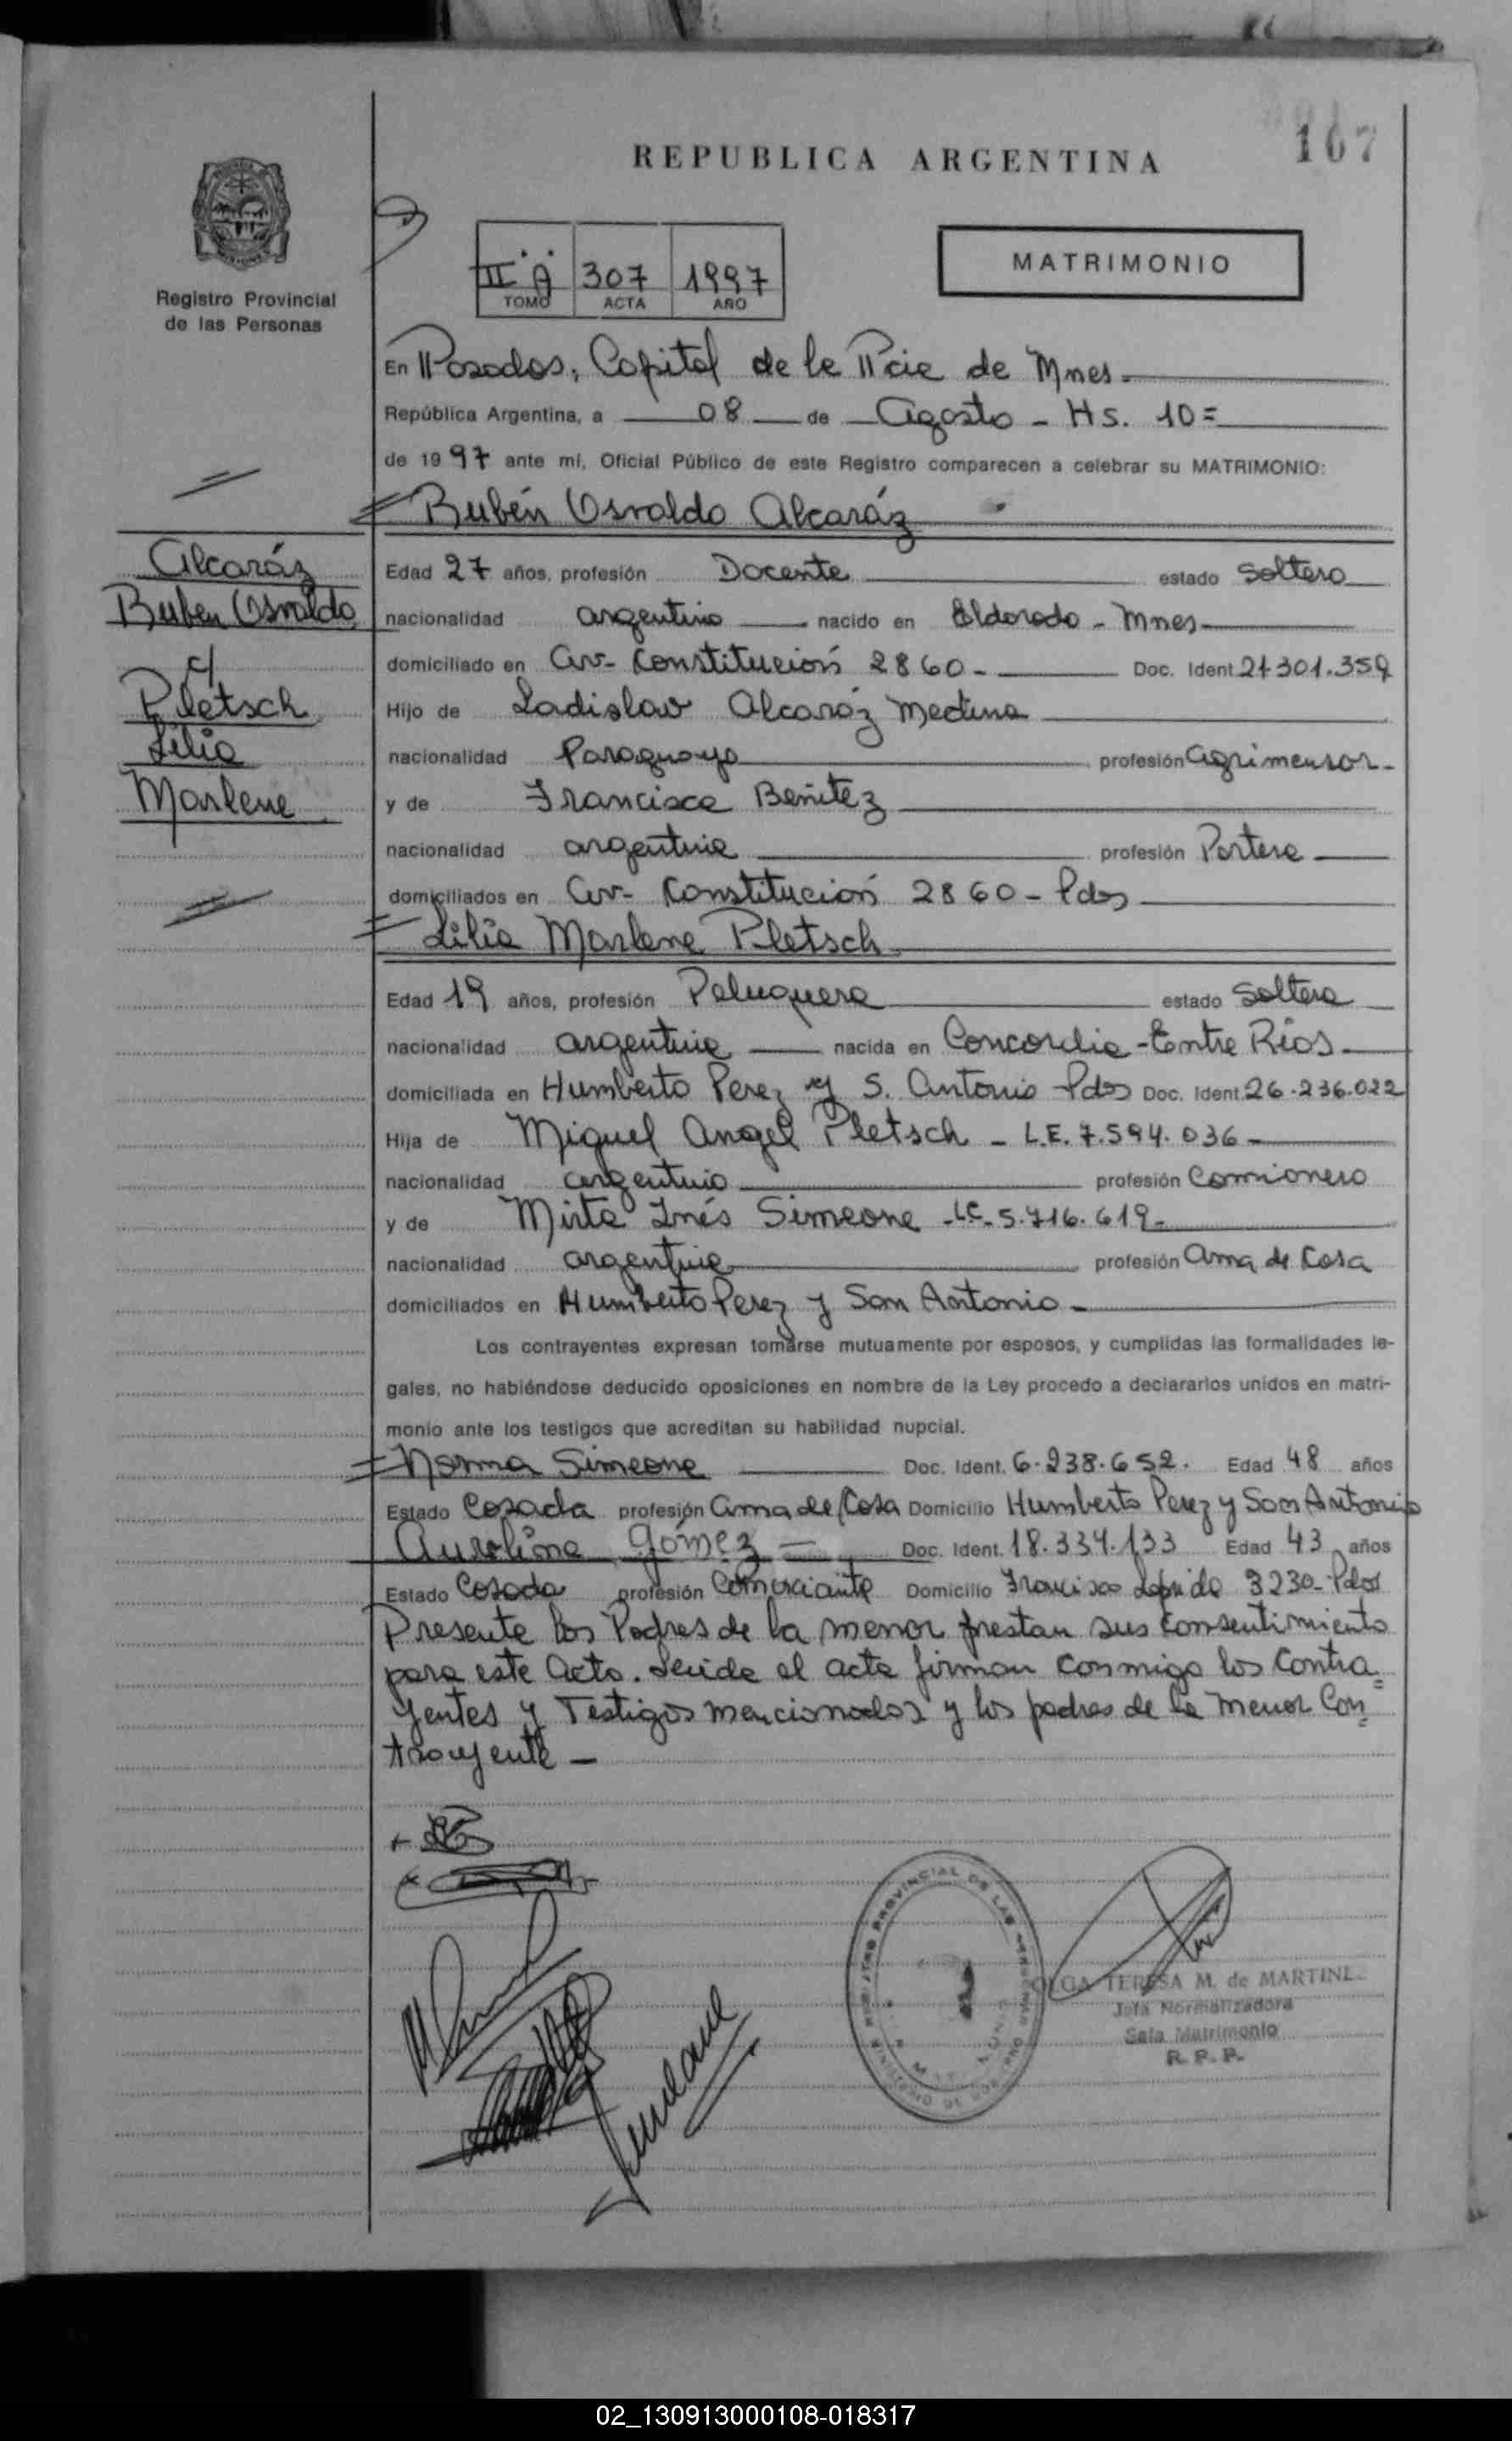 REPUBLICA ARGENTINA
167
Registro Provincial
de las Personas
II A 307 1997
TOMO ACTA AÑO
MATRIMONIO
En Posadas, Capital de la Pcia de Mnes.
República Argentina, a 08 de Agosto - Hs. 10=
de 1997 ante mí, Oficial Público de este Registro comparecen a celebrar su MATRIMONIO:
Rubén Osvaldo Alcaráz
Alcaráz
Ruben Osvaldo
c/
Pletsch
Lilia
Marlene
Edad 27 años, profesión Docente estado Soltero
nacionalidad argentino nacido en Eldorado - Mnes
domiciliado en Av- Constitución 2860- Doc. Ident. 21301.359
Hijo de Ladislao Alcaráz Medina
nacionalidad Paraguaya profesión Agrimensor-
y de Francisca Benitez
nacionalidad argentina profesión Portera
domiciliados en Av- Constitución 2860- Pdas
Lilia Marlene Pletsch
Edad 19 años, profesión Peluquera estado Soltera
nacionalidad argentina nacida en Concordia - Entre Ríos
domiciliada en Humberto Perez y S. Antonio - Pdas Doc. Ident. 26.236.022
Hija de Miguel Angel Pletsch - L.E. 7.594.036-
nacionalidad argentino profesión Camionero
y de Mirta Inés Simeone -LC- 5.716.619-
nacionalidad argentina profesión Ama de Casa
domiciliados en Humberto Perez y San Antonio-
Los contrayentes expresan tomarse mutuamente por esposos, y cumplidas las formalidades le-
gales, no habiéndose deducido oposiciones en nombre de la Ley procedo a declararlos unidos en matri-
monio ante los testigos que acreditan su habilidad nupcial.
Norma Simeone Doc. Ident. 6.238.652. Edad 48 años
Estado Casada profesión Ama de Casa Domicilio Humberto Perez y San Antonio
Aurelina Gómez Doc. Ident. 18.334.133 Edad 43 años
Estado Casada profesión Comerciante Domicilio Francisco 3230- Pdas
Presente los Padres de la menor prestan sus consentimiento
para este Acto. Leida el acta firman conmigo los Contra=
yentes y Testigos mencionados y los padres de la menor Con=
trayente -
REGISTRO PROVINCIAL DE LAS PERSONAS
MINISTERIO DE GOBIERNO
OLGA TERESA M. de MARTINE
Jefa Normalizadora
Sala Matrimonio
R. P. P.
02_130913000108-018317